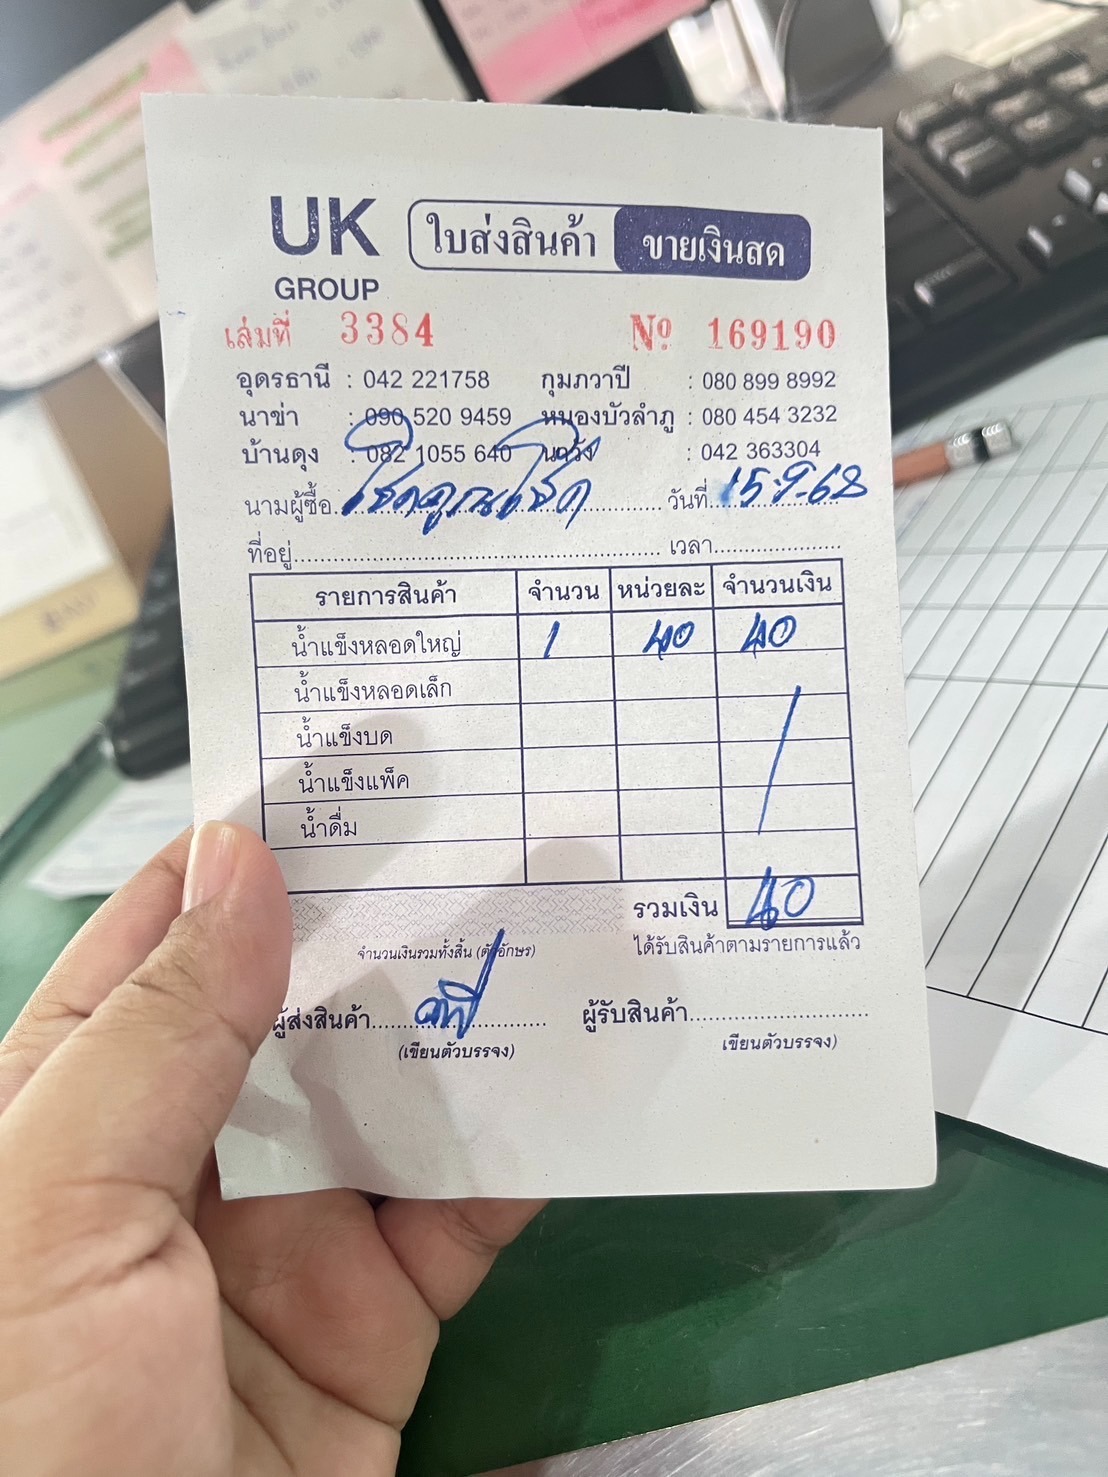 UK
GROUP
ใบส่งสินค้า ขายเงินสด
เล่มที่ 3384 Nº 169190
อุดรธานี : 042 221758 กุมภวาปี : 080 899 8992
นาข่า : 090 520 9459 หนองบัวลำภู : 080 454 3232
บ้านดุง : 082 1055 640 : 042 363304
นามผู้ซื้อ โชคคูณโชค วันที่ 15-9-68
ที่อยู่ เวลา
รายการสินค้า จำนวน หน่วยละ จำนวนเงิน
น้ำแข็งหลอดใหญ่ 1 40 40
น้ำแข็งหลอดเล็ก
น้ำแข็งบด
น้ำแข็งแพ็ค
น้ำดื่ม
รวมเงิน 40
จำนวนเงินรวมทั้งสิ้น (ตัวอักษร) ได้รับสินค้าตามรายการแล้ว
ผู้ส่งสินค้า ผู้รับสินค้า
(เขียนตัวบรรจง) (เขียนตัวบรรจง)